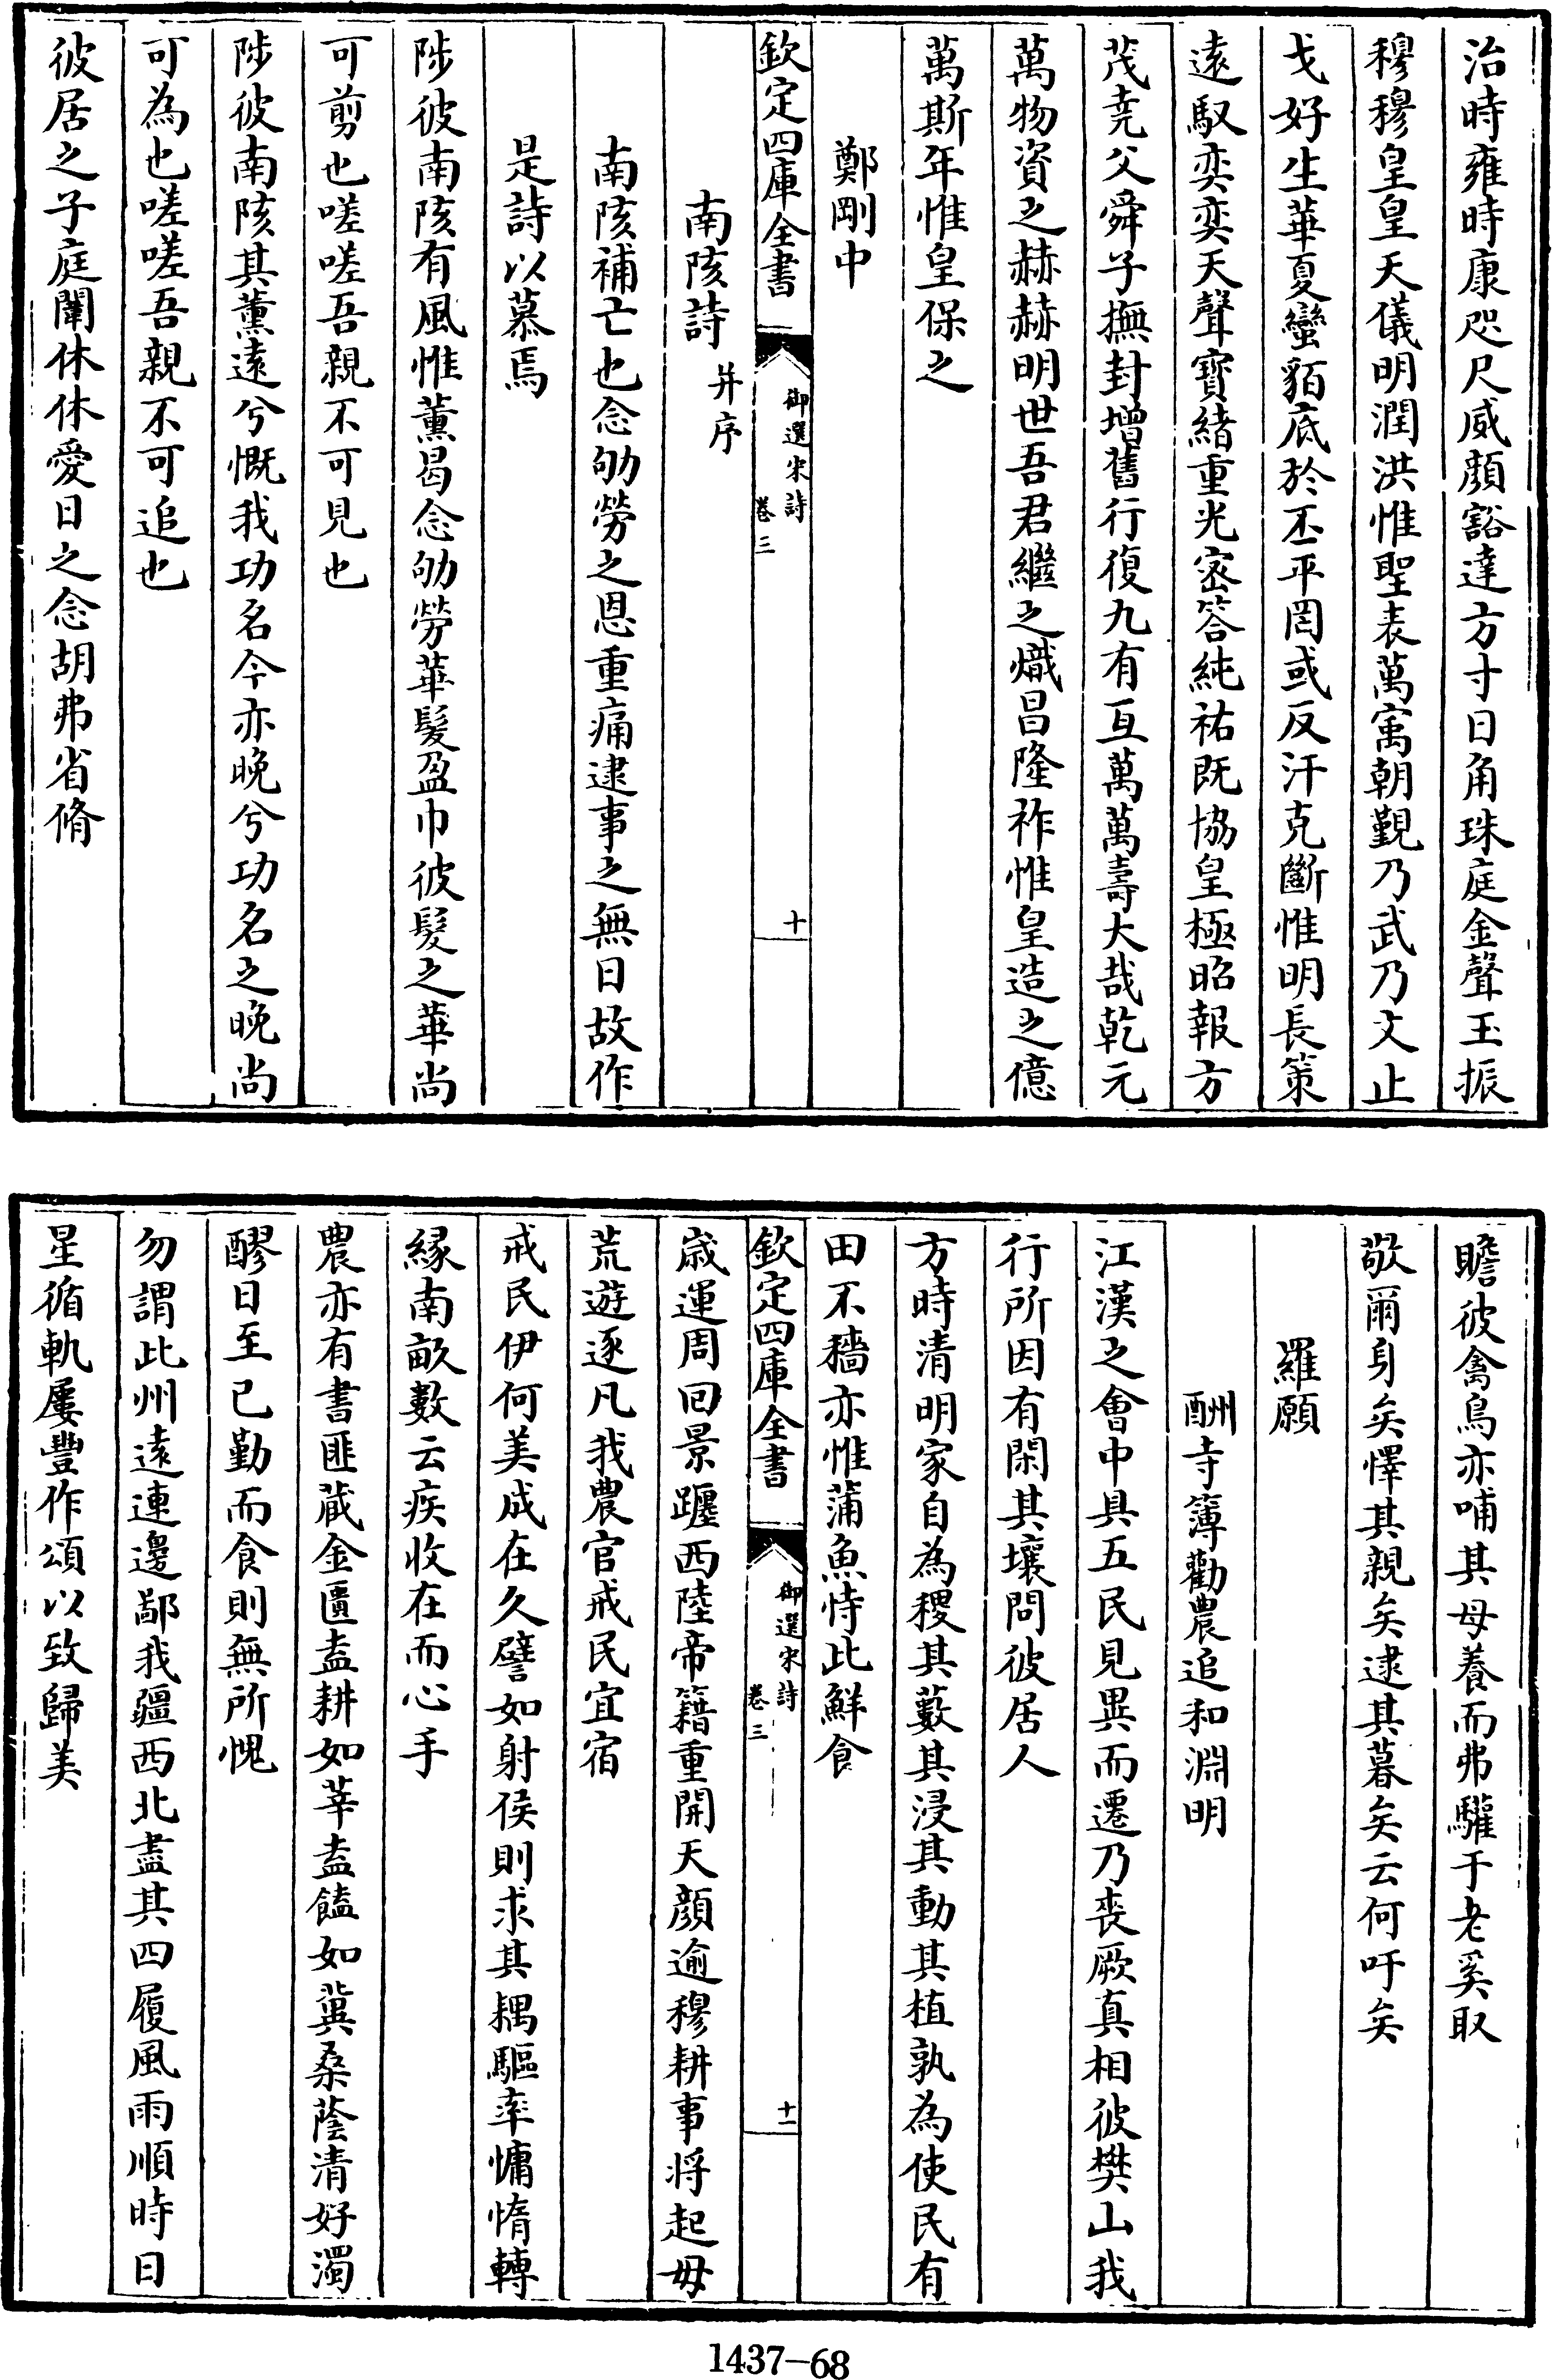 治時雍時康咫尺威顏豁達方寸日角珠庭金聲玉振
穆穆皇皇天儀明潤洪惟聖表萬寓朝覲乃武乃文止
戈好生華夏蠻貊底於丕平罔或反汗克斷惟明長策
遠馭奕奕天聲寶緒重光宻答純祐既協皇極昭報方
茂堯父舜子撫封增舊行復九有亙萬萬壽大哉乾元
萬物資之赫赫明世吾君繼之熾昌隆祚惟皇造之億
萬斯年惟皇保之
鄭剛中
欽定四庫全書
御選宋詩
卷三
十
南陔詩
并序
南陔補亡也念劬勞之恩重痛逮事之無日故作
是詩以慕焉
陟彼南陔有風惟薰曷念劬勞華髮盈巾彼髮之華尚
可剪也嗟嗟吾親不可見也
陟彼南陔其薰遠兮慨我功名今亦晚兮功名之晚尚
可為也嗟嗟吾親不可追也
彼居之子庭闈休休愛日之念胡弗省脩
瞻彼禽鳥亦哺其母養而弗驩于老奚取
敬爾身矣懌其親矣逮其暮矣云何吁矣
羅願
酬寺簿勸農追和淵明
江漢之會中具五民見異而遷乃喪厥真相彼樊山我
行所因有閑其壤問彼居人
方時清明家自為稷其藪其浸其動其植孰為使民有
田不穡亦惟蒲魚恃此鮮食
欽定四庫全書
御選宋詩
卷三
十一
歲運周回景躔西陸帝籍重開天顏逾穆耕事将起毋
荒遊逐凡我農官戒民宜宿
戒民伊何美成在久譬如射侯則求其耦驅率慵惰轉
緣南畝數云疾收在而心手
農亦有書匪蔵金匱盍耕如莘盍饁如冀桑蔭清好濁
醪日至已勤而食則無所愧
勿謂此州遠連邊鄙我疆西北盡其四履風雨順時日
星循軌屢豐作頌以致歸美
1437-68